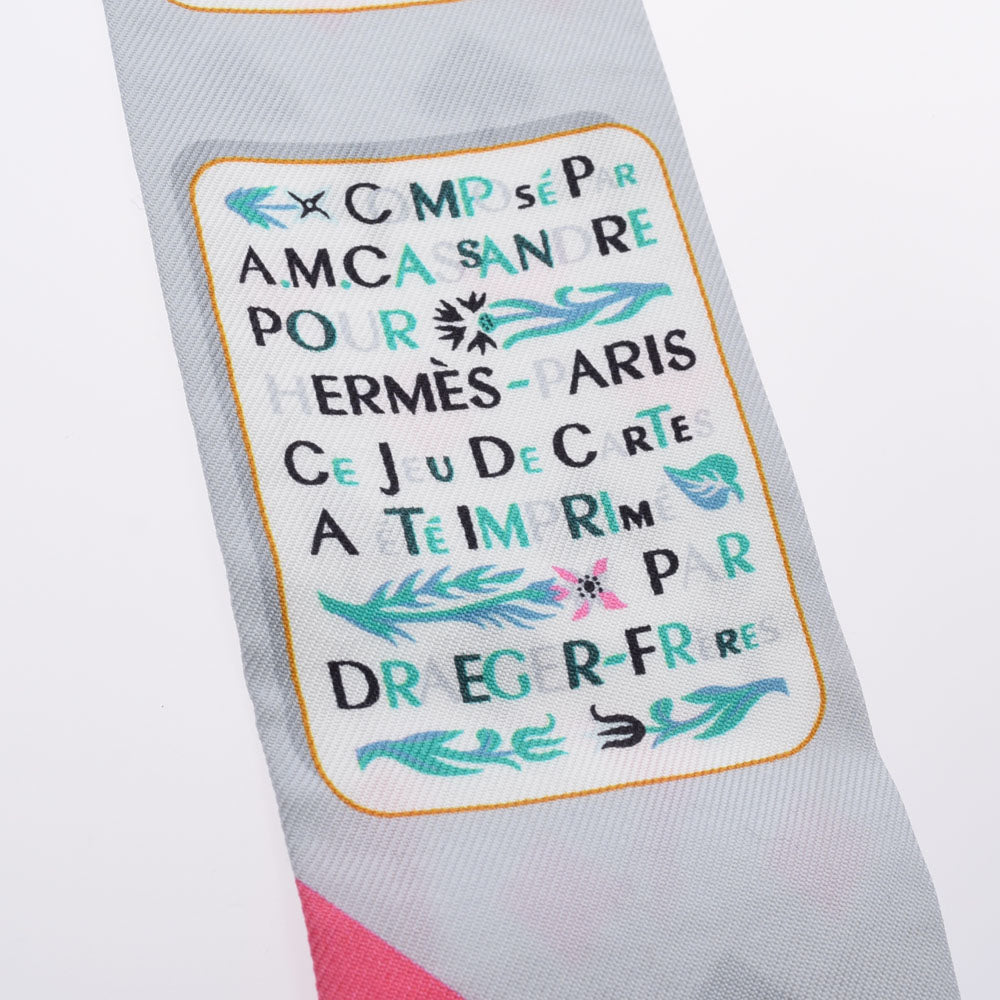 COMPOSÉ PAR
A.M.CASSANDRE
POUR
HERMÈS-PARIS
CE JEU DE CARTES
A ÉTÉ IMPRIMÉ
PAR
DRAEGER-FRÈRES